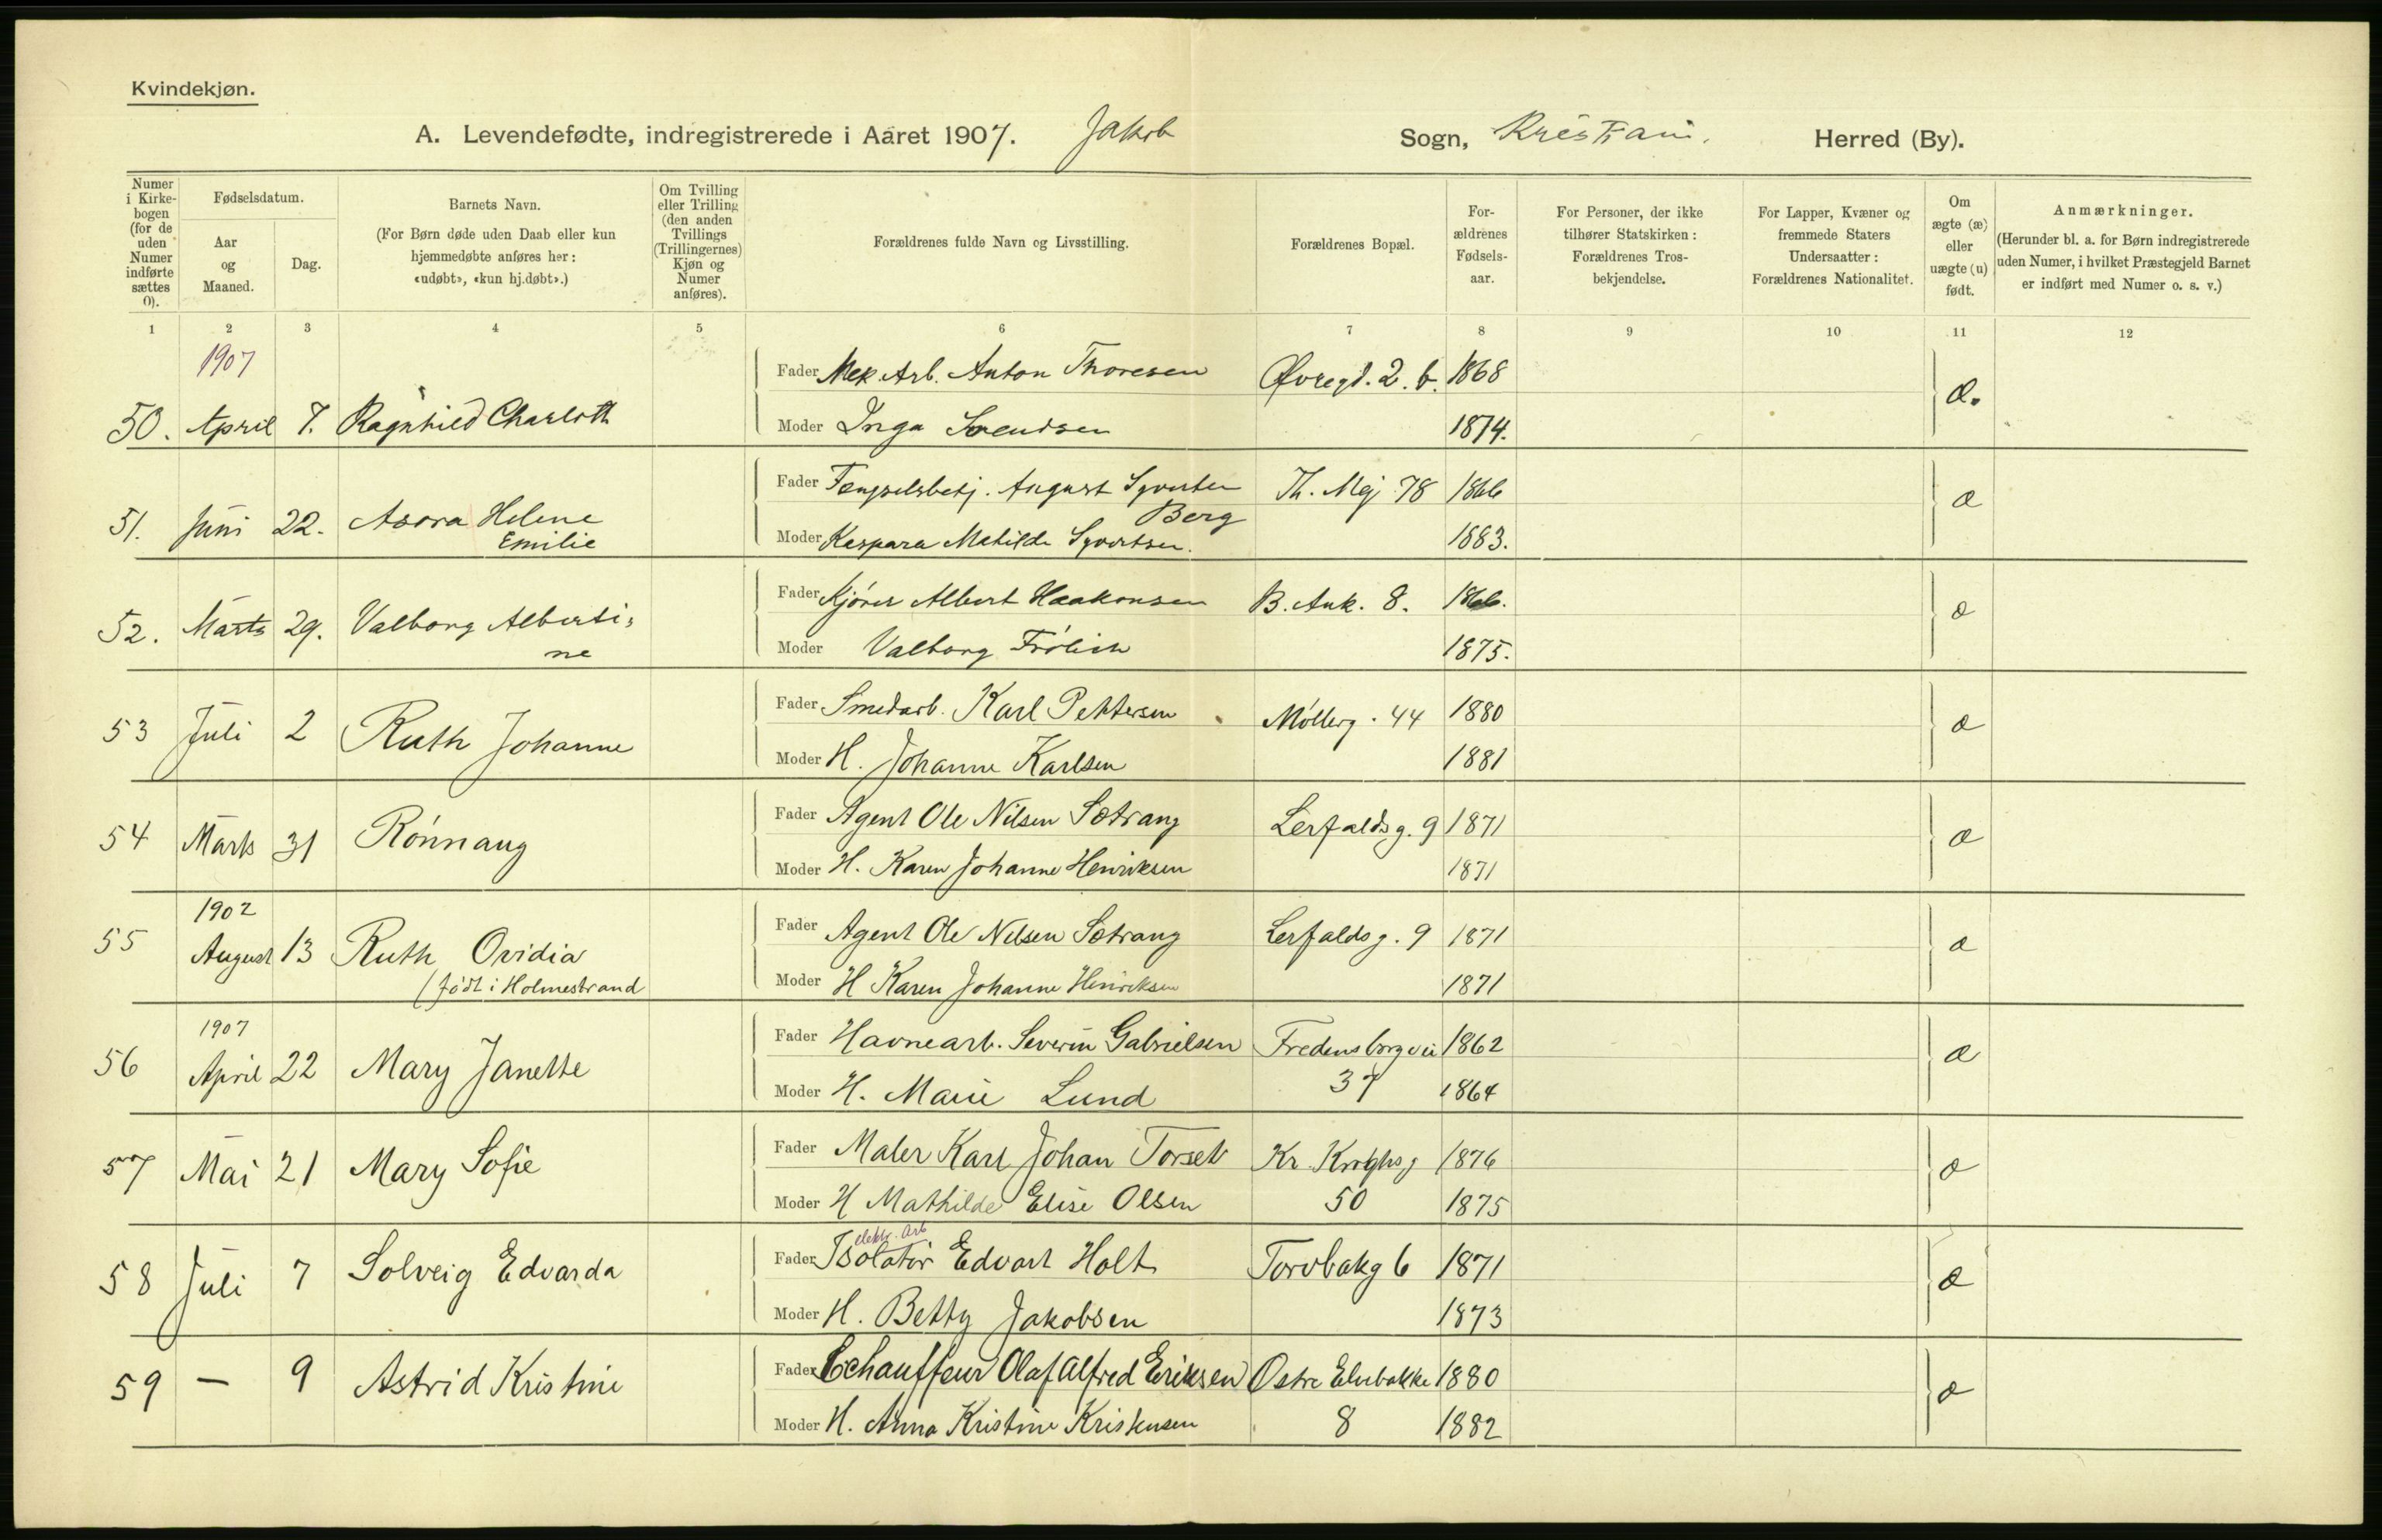 Kvindekjøn.
A. Levendefødte, indregistrerede i Aaret 1907. Jakob Sogn, Kristiania. Herred (By).
Numer i Kirkebogen (for de uden Numer indførte sættes 0).
Fødselsdatum.
Aar og Maaned.
Dag.
Barnets Navn.
(For Børn døde uden Daab eller kun hjemmedøbte anføres her: «udøbt», «kun hj.døbt».)
Om Tvilling eller Trilling (den anden Tvillings (Trillingernes) Kjøn og Numer anføres).
Forældrenes fulde Navn og Livsstilling.
Forældrenes Bopæl.
Forældrenes Fødselsaar.
For Personer, der ikke tilhører Statskirken: Forældrenes Trosbekjendelse.
For Lapper, Kvæner og fremmede Staters Undersaatter: Forældrenes Nationalitet.
Om ægte (æ) eller uægte (u) født.
Anmærkninger.
(Herunder bl. a. for Børn indregistrerede uden Numer, i hvilket Præstegjeld Barnet er indført med Numer o. s. v.)
1 2 3 4 5 6 7 8 9 10 11 12
1907
Fader Mek. Arb. Anton Thoresen Øvregd. 2. b. 1868
50. April 7. Ragnhild Charloth æ.
Moder Inga Svendsen 1874.
Fader Fængselsbetj. August Syvertsen Th. Mej. 78 1866
Berg
51. Juni 22. Asora Helene æ
Emilie
Moder Kaspara Mathilde Syvertsen. 1883.
Fader Kjører Albert Haakonsen B. Ank. 8. 1866.
52. Marts 29. Valborg Alberti-
ne æ
Moder Valborg Frölich 1875.
Fader Smedarb. Karl Pettersen Møllerg. 44 1880
53 Juli 2 Ruth Johanne æ
Moder H. Johanne Karlsen 1881
Fader Agent Ole Nilsen Sætrang Lerfaldsg. 9 1871
54 Marts 31 Rønnaug æ
Moder H. Karen Johanne Henriksen 1871
1902
Fader Agent Ole Nilsen Sætrang Lerfaldsg. 9 1871
55 August 13 Ruth Ovidia æ
(født i Holmestrand
Moder H Karen Johanne Henriksen 1871
1907
Fader Havnearb. Severin Gabrielsen Fredensborgvei 1862
56 April 22 Mary Janette æ
Moder H. Marie Lund 37 1864
Fader Maler Karl Johan Torseth Kr. Kroghsg 1876
57 Mai 21 Mary Sofie æ
Moder H Mathilde Elise Olsen 50 1875
elektr. Arb
Fader Isolatør Edvart Holt Torvbakg 6 1871
58 Juli 7 Solveig Edvarda æ
Moder H. Betty Jakobsen 1873
Fader Chauffeur Olaf Alfred Eriksen Østre Elvebakke 1880
59 — 9 Astrid Kristine æ
Moder H. Anna Kristine Kristensen 8 1882